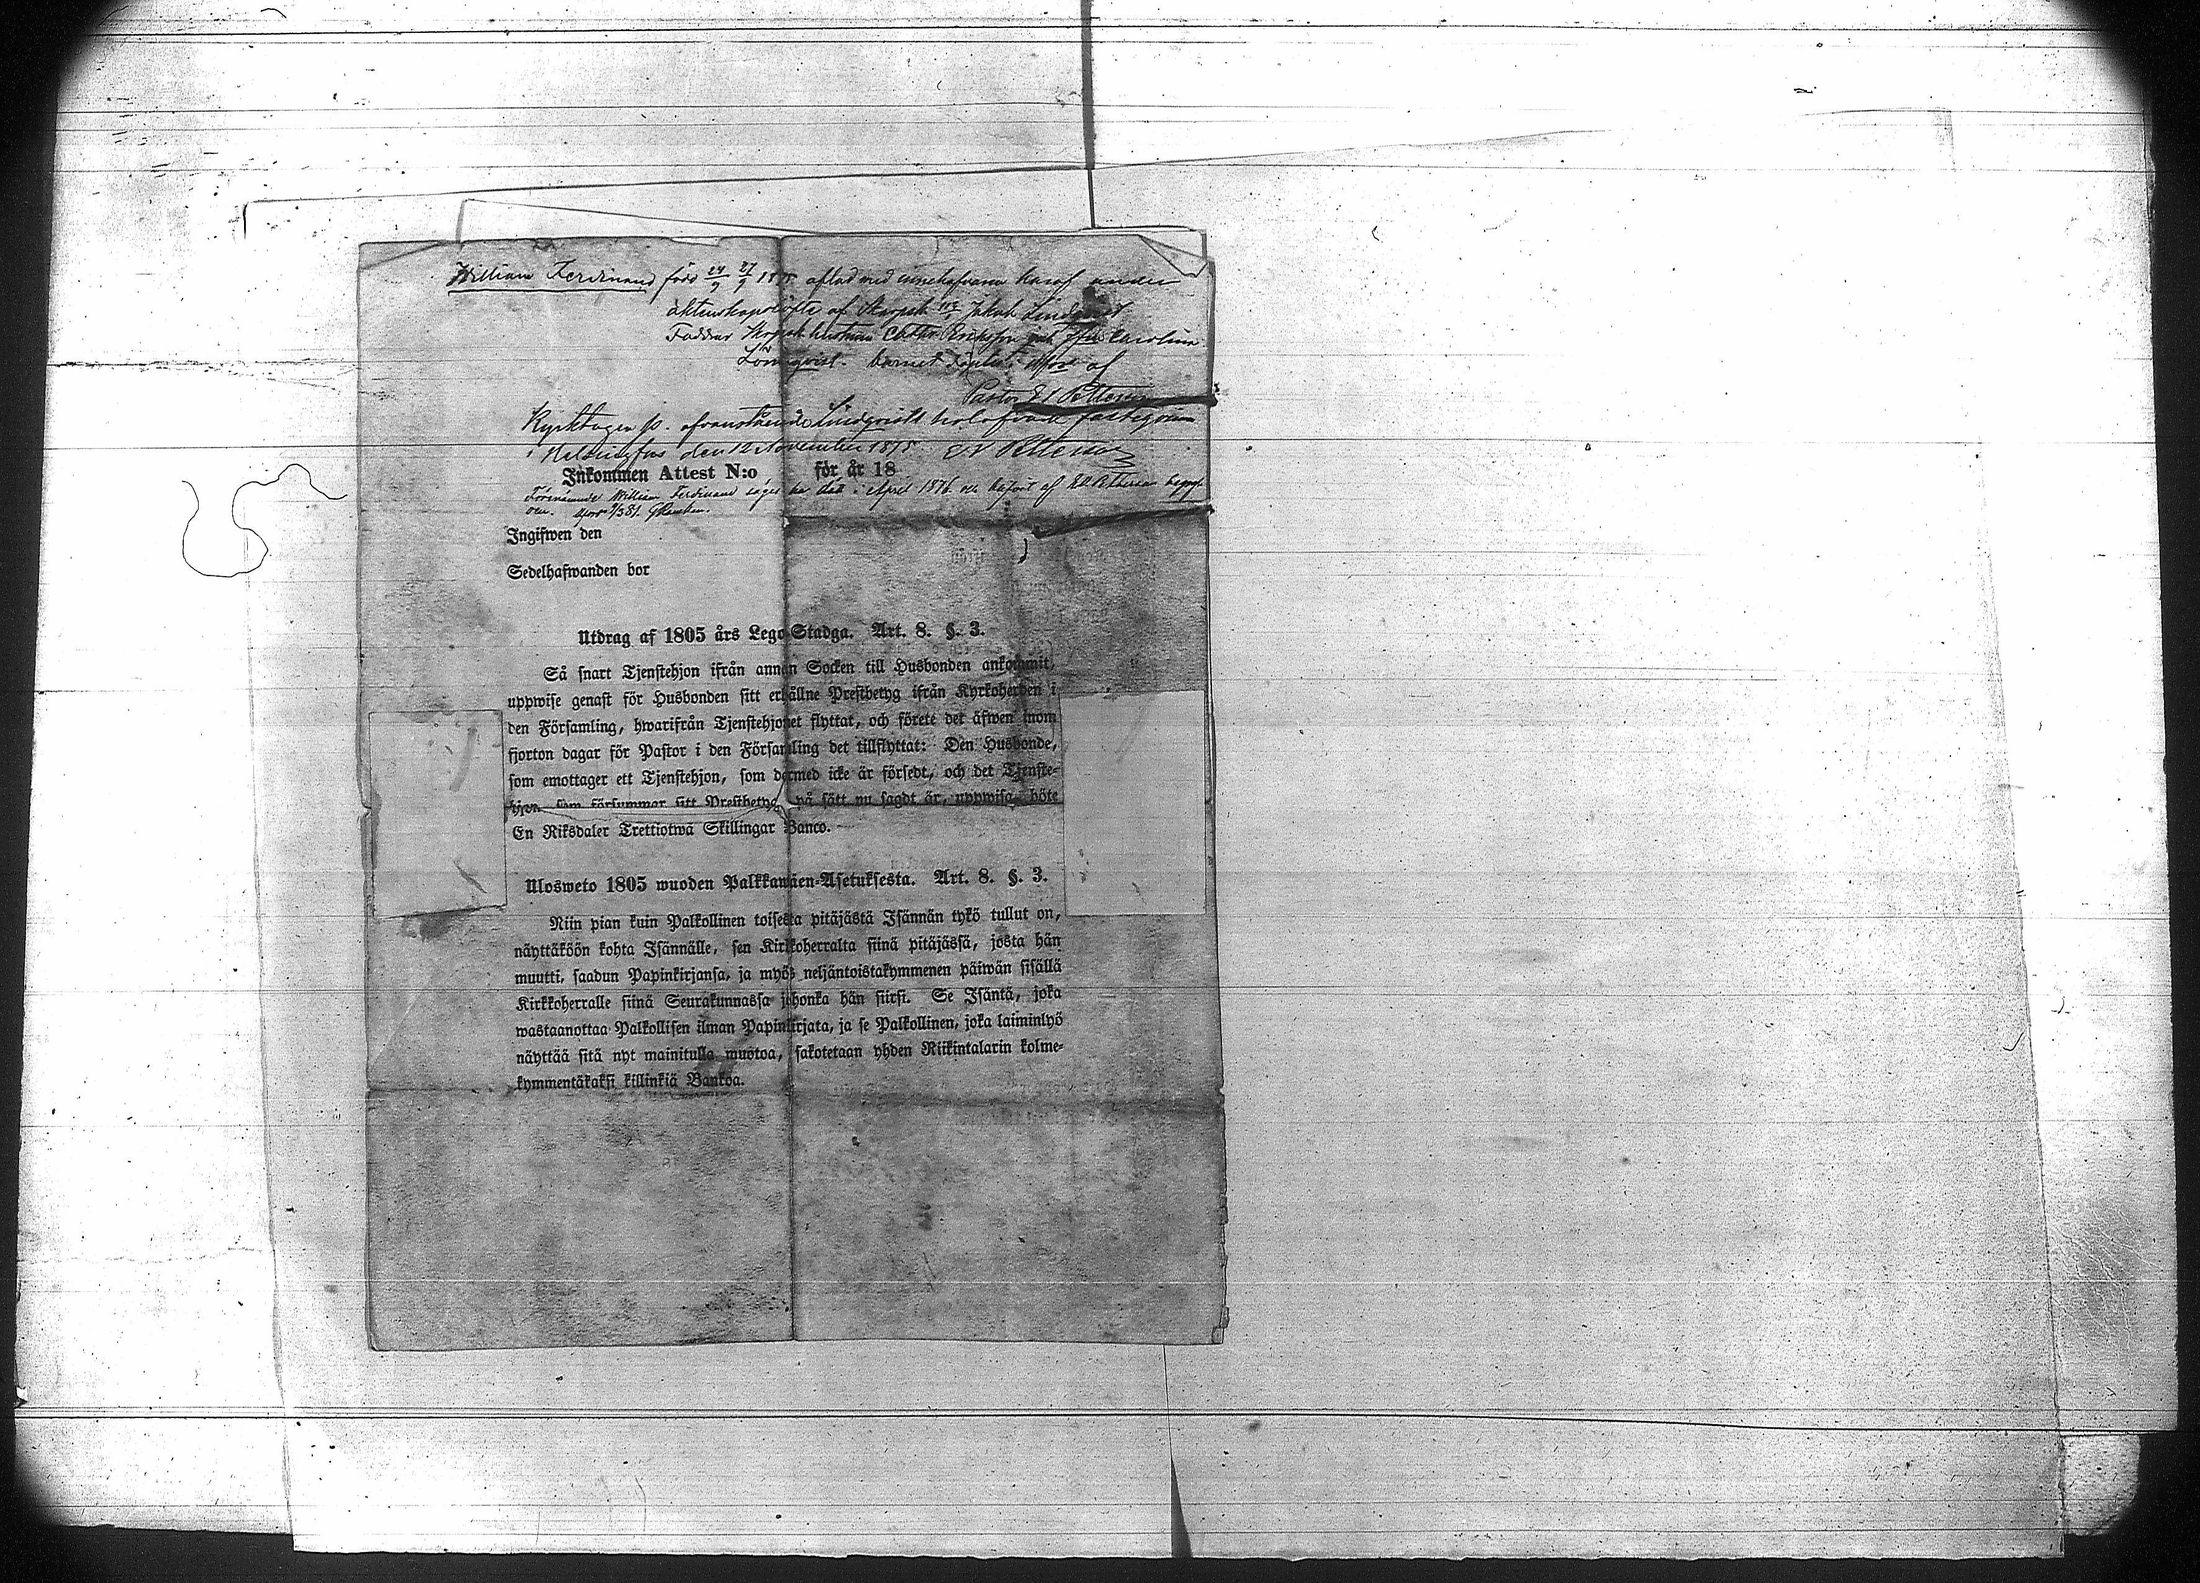 William Ferdinand född 24/9 27/9 1875 aflad med innehafvaren haraf under
äktenskapslöfte af Skarpsk Jakob Lindqvist
Faddrar Skarpsk hustrun Carolina
Lönnqvist. barnet af
Pastor Pettersson
Kyrktagen s. Lindqvists trolofvade fästeqvinna
i Helsingfors den 12 November 1875. Pettersson
Inkommen Attest N:o för år 18
Förenämnde William Ferdinand säges ha dött i April 1876. af
Ingifwen den
Sedelhafwanden bor
Utdrag af 1805 års Lego-Stadga. Art. 8. §. 3.
Så snart Tjenstehjon ifrån annan Socken till Husbonden ankommit,
uppwise genast för Husbonden sitt erhållne Prestbetyg ifrån Kyrkoherden i
den Församling, hwarifrån Tjenstehjonet flyttat, och förete det äfwen inom
fjorton dagar för Pastor i den Församling det tillflyttat: Den Husbonde,
som emottager ett Tjenstehjon, som dermed icke är försedt, och det Tjenste-
hjon, som försummar sitt Prestbetyg på sätt nu sagdt är, uppwisa, böte
En Riksdaler Trettiotwå Skillingar Banco.
Ulosweto 1805 wuoden Palkkawäen-Asetuksesta. Art. 8. §. 3.
Niin pian kuin Palkollinen toisesta pitäjästä Isännän tykö tullut on,
näyttäköön kohta Isännälle, sen Kirkkoherralta siinä pitäjässä, josta hän
muutti, saadun Papinkirjansa, ja myös neljäntoistakymmenen päiwän sisällä
Kirkkoherralle siinä Seurakunnassa johonka hän siirsi. Se Isäntä, joka
wastaanottaa Palkollisen ilman Papinkirjata, ja se Palkollinen, joka laiminlyö
näyttää sitä nyt mainitulla muotoa, sakotetaan yhden Riikintalarin kolme-
kymmentäkaksi killinkiä Bankoa.